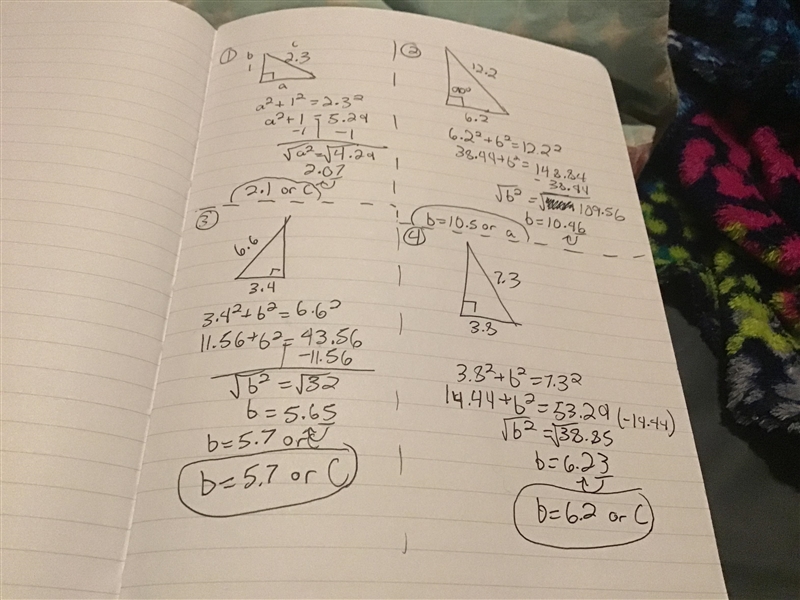 ①
b c
1 2.3
a
a²+1²=2.3²
a²+1=5.29
-1 -1
√a²=√4.29
2.07
2.1 or C
②
12.2
90°
6.2
6.2²+b²=12.2²
38.44+b²=148.84
-38.44
√b²=√109.56
b=10.46
b=10.5 or a
③
6.6
3.4
3.4²+b²=6.6²
11.56+b²=43.56
-11.56
√b²=√32
b=5.65
b=5.7 or C
b=5.7 or C
④
7.3
3.8
3.8²+b²=7.3²
14.44+b²=53.29(-14.44)
√b²=√38.85
b=6.23
b=6.2 or C